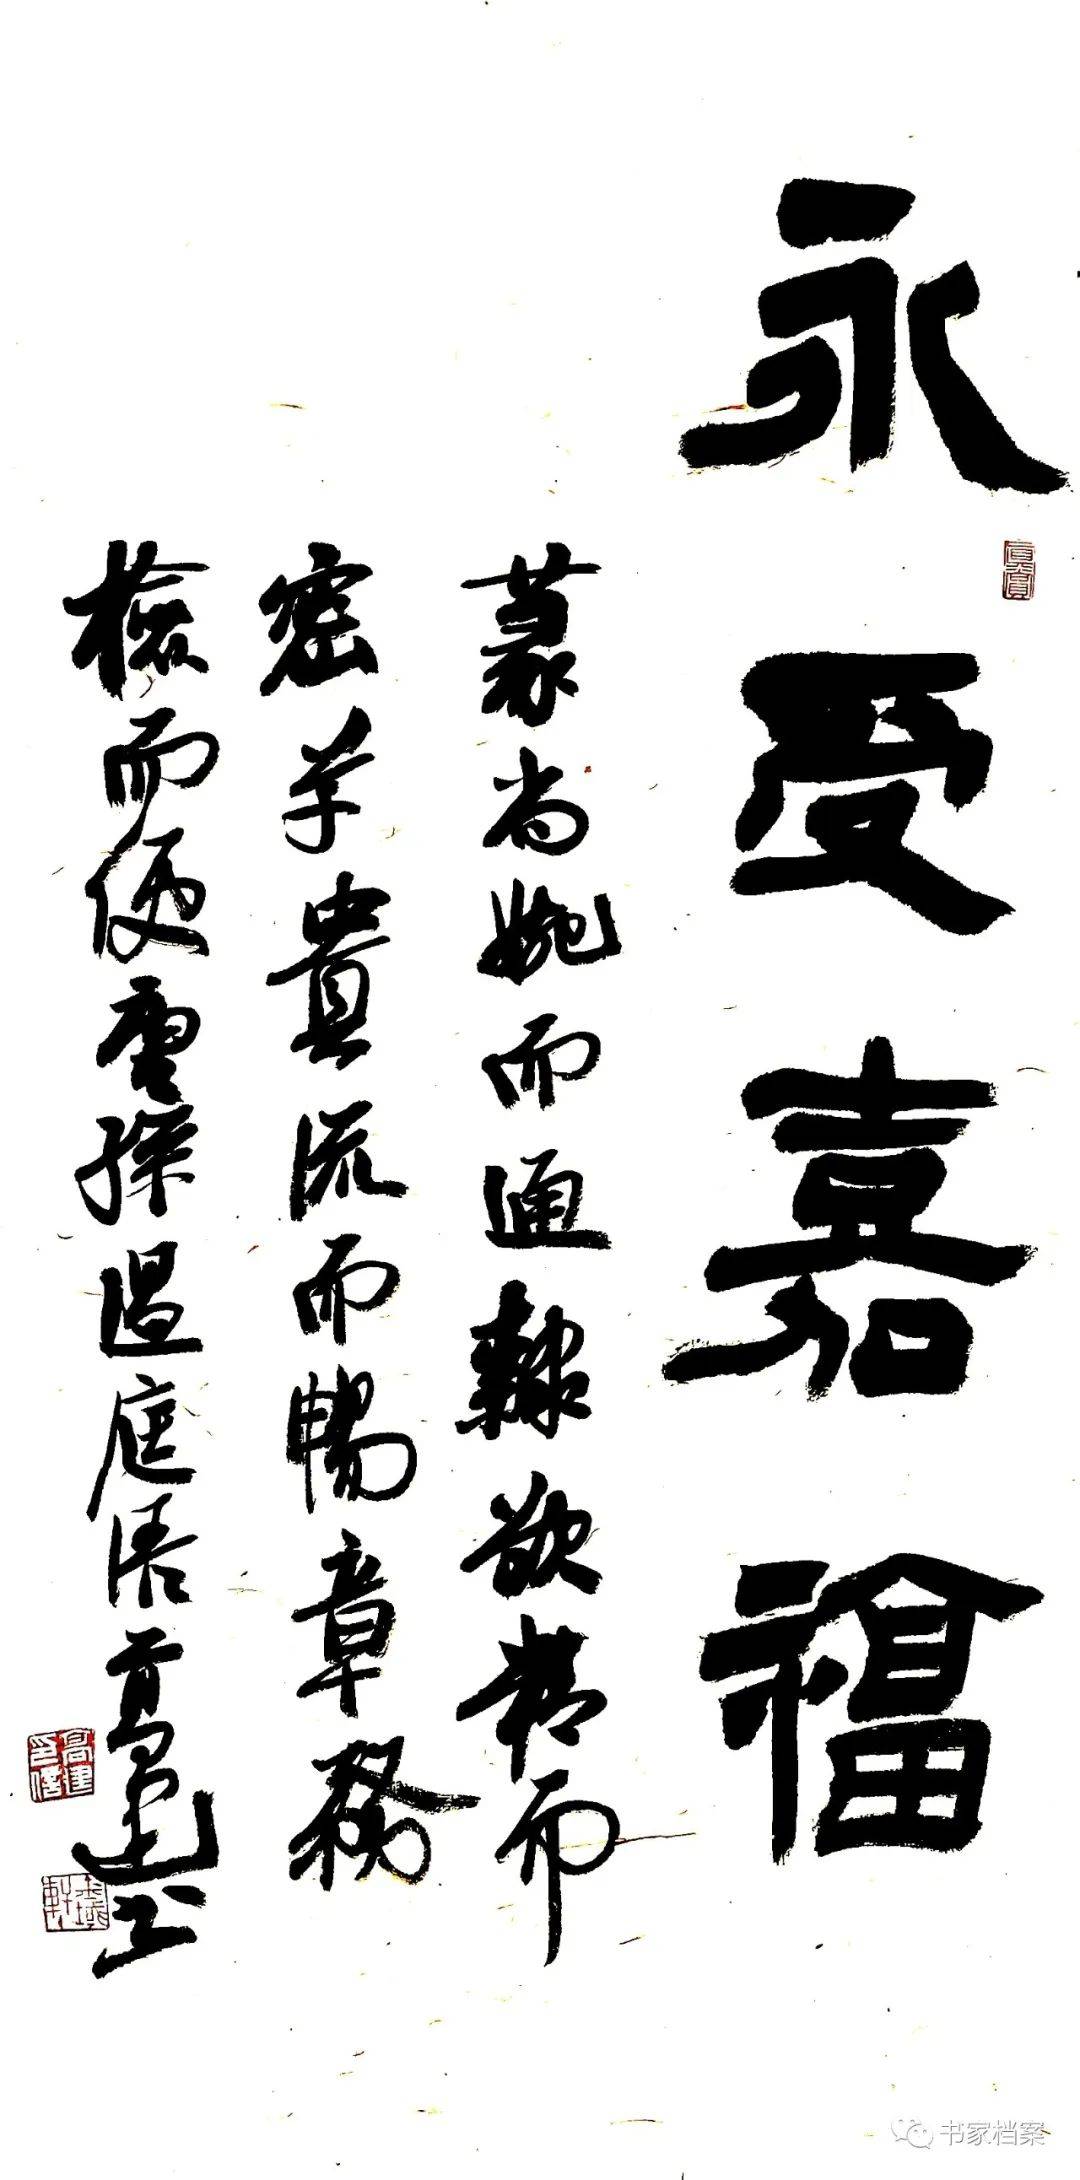 永受嘉福
篆尚婉而通隸欲精而
密草貴流而暢章務
檢而便唐孫過庭語高建書
高建印信
书家档案